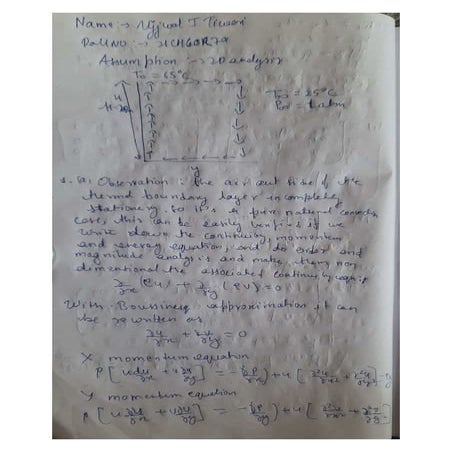 Name :→ Ujjwal T Tiwari
Roll NO :→
Assumption :→ 2D analysis
T₀ = 65°C
T∞ = 25°C
P∞ = 1 atm
H
y
1. (a) Observation : the air out side of the
thermal boundary layer is completely
stationary. so it's a pure natural convection
case, this can be easily verified if we
write down the continuity, momentum
and energy equation, and do order and
magnitude analysis and make them non
dimensional the associated continuity eqn is
∂/∂x (ρu) + ∂/∂y (ρv) = 0
With Boussinesq approximation it can
be rewritten as
∂u/∂x + ∂v/∂y = 0
X momentum equation
ρ [ u ∂u/∂x + v ∂u/∂y ] = - ∂P/∂x + u [ ∂²u/∂x² + ∂²u/∂y² ] -
Y momentum equation
ρ [ u ∂v/∂x + v ∂v/∂y ] = - ∂P/∂y + u [ ∂²v/∂x² + ∂²v/∂y² ]